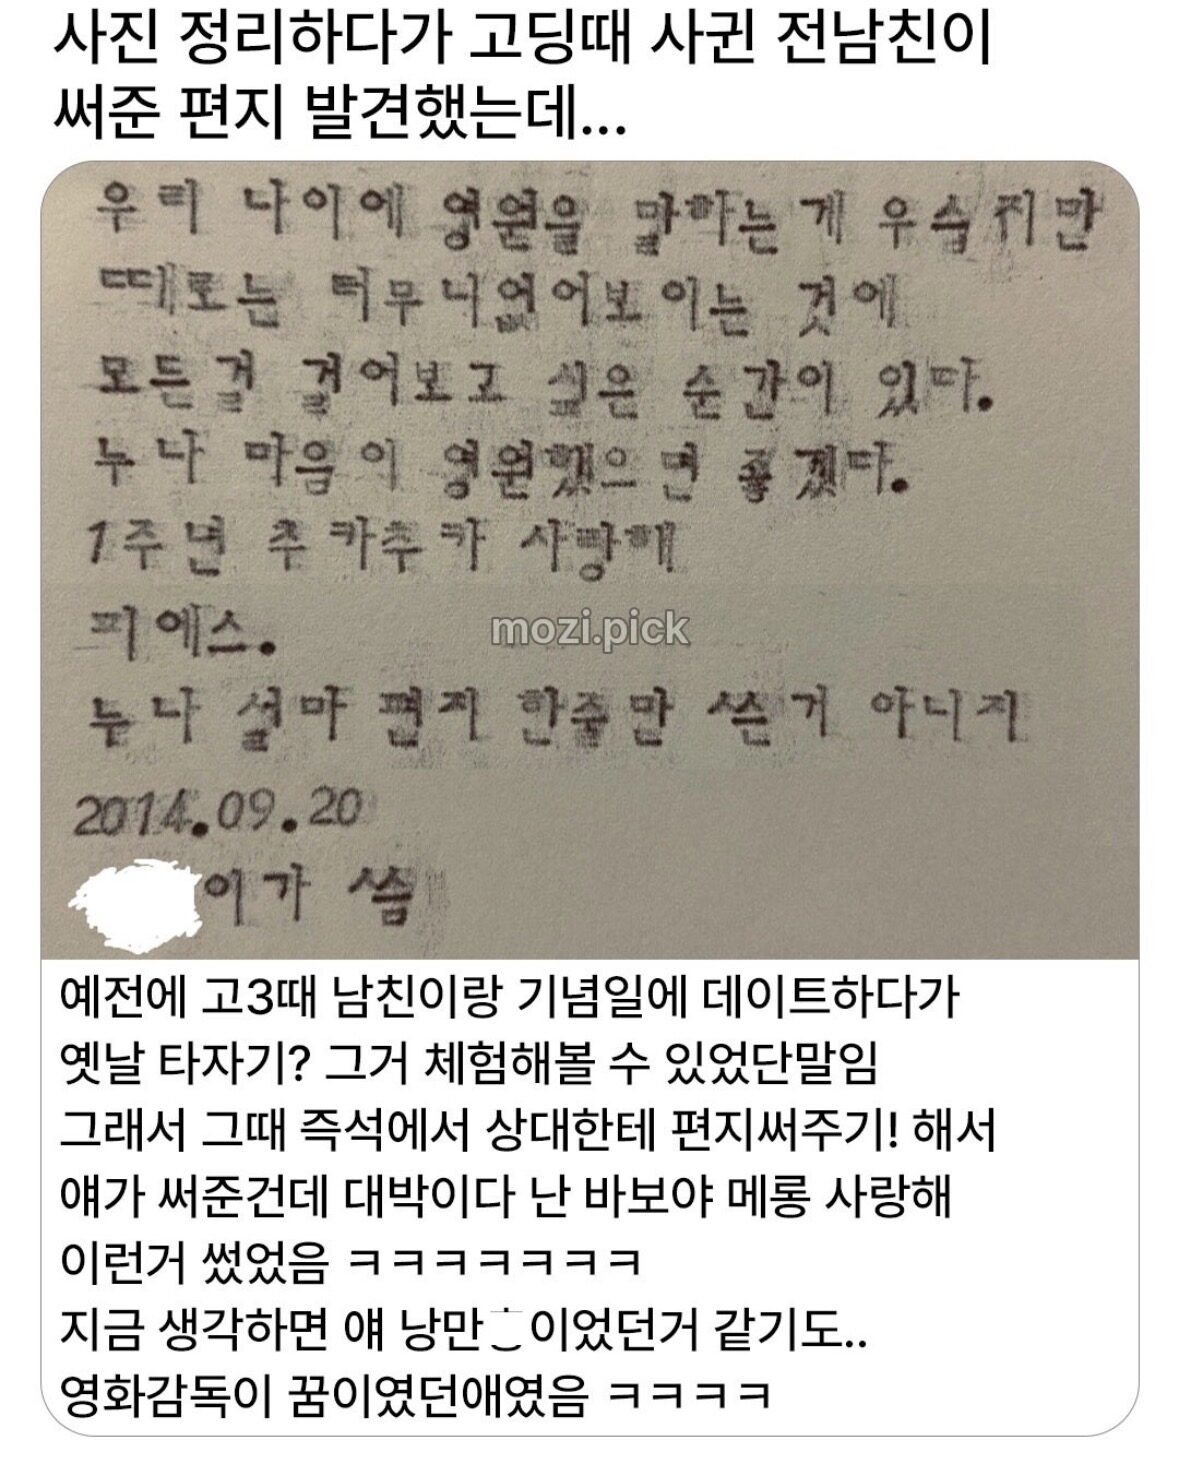 사진 정리하다가 고딩때 사귄 전남친이
써준 편지 발견했는데...
우리 나이에 영원을 말하는 게 우습지만
때로는 터무니없어보이는 것에
모든걸 걸어보고 싶은 순간이 있다.
누나 마음이 영원했으면 좋겠다.
1주년 추카추카 사랑해
피에스.
누나 설마 편지 한줄만 쓴거 아니지
2014.09.20
이가 씀
mozi.pick
예전에 고3때 남친이랑 기념일에 데이트하다가
옛날 타자기? 그거 체험해볼 수 있었단말임
그래서 그때 즉석에서 상대한테 편지써주기! 해서
얘가 써준건데 대박이다 난 바보야 메롱 사랑해
이런거 썼었음 ㅋㅋㅋㅋㅋㅋㅋ
지금 생각하면 얘 낭만이었던거 같기도..
영화감독이 꿈이였던애였음 ㅋㅋㅋㅋ